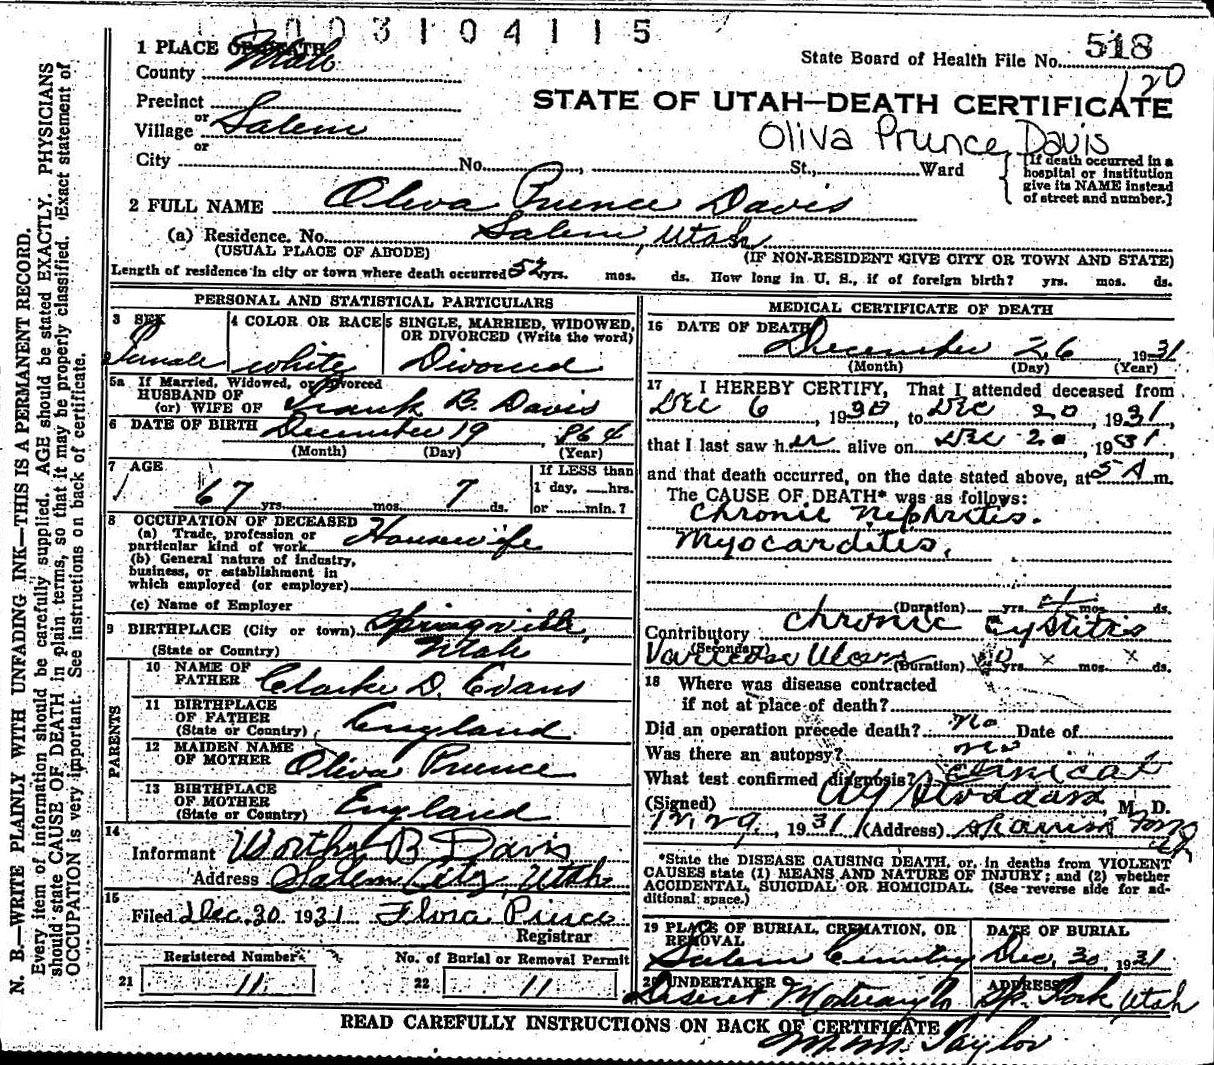 003104115
1 PLACE OF DEATH
State Board of Health File No. 518
County Utah
120
STATE OF UTAH—DEATH CERTIFICATE
Precinct
or
Village Salem
or
Oliva Prunce Davis
City No. St., Ward
{If death occurred in a hospital or institution give its NAME instead of street and number.]
2 FULL NAME Oliva Prunce Davis
(a) Residence. No. Salem, Utah
(USUAL PLACE OF ABODE) (IF NON-RESIDENT GIVE CITY OR TOWN AND STATE)
Length of residence in city or town where death occurred 52 yrs. mos. ds. How long in U. S., if of foreign birth? yrs. mos. ds.
PERSONAL AND STATISTICAL PARTICULARS
3 SEX Female
4 COLOR OR RACE white
5 SINGLE, MARRIED, WIDOWED, OR DIVORCED (Write the word) Divorced
5a If Married, Widowed, or Divorced
HUSBAND OF
(or) WIFE OF Frank B. Davis
6 DATE OF BIRTH December 19, 1864
(Month) (Day) (Year)
7 AGE
67 yrs. mos. 7 ds.
If LESS than
1 day, hrs.
or min.?
8 OCCUPATION OF DECEASED
(a) Trade, profession or
particular kind of work Housewife
(b) General nature of industry,
business, or establishment in
which employed (or employer)
(c) Name of Employer
9 BIRTHPLACE (City or town) Springville,
(State or Country) Utah
PARENTS
10 NAME OF
FATHER Clarke D. Evans
11 BIRTHPLACE
OF FATHER England
(State or Country)
12 MAIDEN NAME
OF MOTHER Oliva Prunce
13 BIRTHPLACE
OF MOTHER England
(State or Country)
14
Informant Worthy B Davis
Address Salem City, Utah
15
Filed Dec. 30 1931 Flora Pierce
Registrar
Registered Number
21 11
No. of Burial or Removal Permit
22 11
MEDICAL CERTIFICATE OF DEATH
16 DATE OF DEATH
December 26 1931
(Month) (Day) (Year)
17 I HEREBY CERTIFY, That I attended deceased from
Dec 6, 1930 to Dec 20, 1931,
that I last saw her alive on Dec 20, 1931,
and that death occurred, on the date stated above, at 5 A m.
The CAUSE OF DEATH* was as follows:
Chronic Nephritis.
Myocarditis.
(Duration) yrs. mos. ds.
Contributory Chronic Cystitis
(Secondary)
Varicose Ulcers (Duration) yrs. x mos. x ds.
18 Where was disease contracted
if not at place of death?
Did an operation precede death? no Date of
Was there an autopsy? no
What test confirmed diagnosis? Clinical
(Signed) Stoddard, M. D.
12.29., 1931 (Address) Spanish Fork
*State the DISEASE CAUSING DEATH, or, in deaths from VIOLENT
CAUSES state (1) MEANS AND NATURE OF INJURY; and (2) whether
ACCIDENTAL, SUICIDAL OR HOMICIDAL. (See reverse side for ad-
ditional space.)
19 PLACE OF BURIAL, CREMATION, OR
REMOVAL
Salem Cemetery
DATE OF BURIAL
Dec. 30, 1931
20 UNDERTAKER
Deseret Mortuary Co
ADDRESS
Sp. Fork Utah
READ CAREFULLY INSTRUCTIONS ON BACK OF CERTIFICATE
Taylor
N. B.—WRITE PLAINLY WITH UNFADING INK—THIS IS A PERMANENT RECORD.
Every item of information should be carefully supplied. AGE should be stated EXACTLY. PHYSICIANS
should state CAUSE OF DEATH in plain terms, so that it may be properly classified. Exact statement of
OCCUPATION is very important. See instructions on back of certificate.